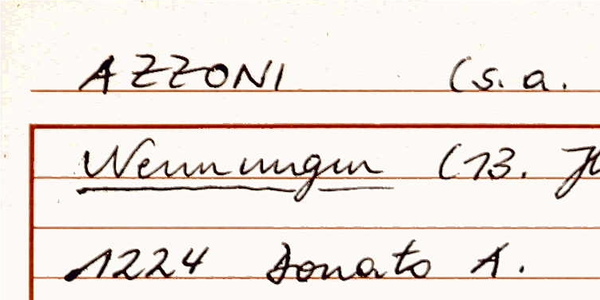 AZZONI (s. a.
Nennungen (13. Jh
1224 Donato A.